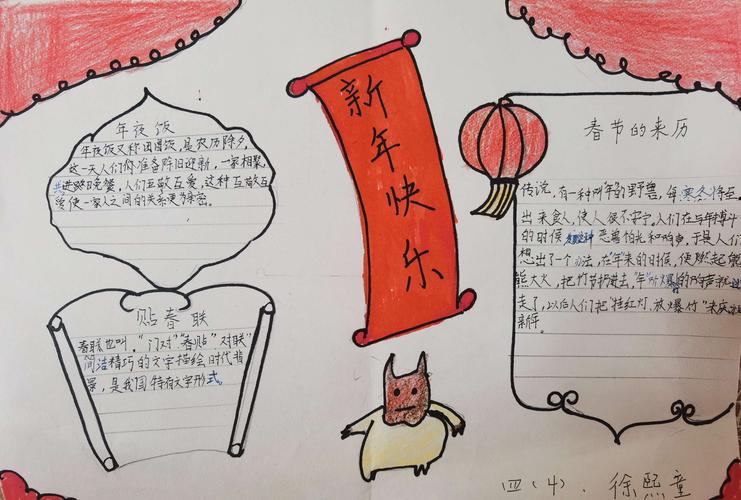 年夜饭
年夜饭又称团圆饭,是农历除夕,
这一天人们你准备除旧迎新,一家相聚,
共进晚餐,人们互敬互爱,这种互敬互
爱使一家人之间的关系更为亲密。
贴春联
春联也叫,“门对”“春贴”对联”
简洁精巧的文字描绘时代背
景,是我国特有文字形式。
新年快乐
春节的来历
传说,有一种叫年的野兽,每,寒冬将至,
出来食人,使人很不安宁。人们在与年搏斗
的时候 发现这种恶兽怕光和响声,于是人们
想出了一个办法,在年来的时候,使燃起熊
熊大火,把竹节扔进去,“年”听爆的响声就
走了,以后人们把“挂红灯,放爆竹”来庆
新年。
四(4). 徐熙童